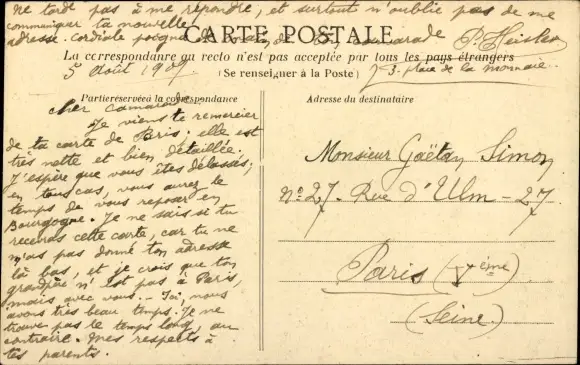 ne tarde pas à me répondre, et surtout n'oublie pas de me
communiquer ta nouvelle
adresse. Cordiale poignée de main de ton camarade P.
CARTE POSTALE
La correspondance au recto n'est pas acceptée par tous les pays étrangers
(Se renseigner à la Poste)
5 Août 1907
3. place de la monnaie.
Partie réservée à la correspondance
Adresse du destinataire
Cher Camarade,
Je viens te remercier
de ta carte de Paris; elle est
très nette et bien détaillée.
J'espère que vous êtes délassés;
en tous cas, vous aurez le
temps de vous reposer en
Bourgogne. Je ne sais si tu
recevras cette carte, car tu ne
m'as pas donné ton adresse
là bas, et je crois que ton
grandpère n'est pas à Paris,
mais avec vous. — Ici, nous
avons très beau temps. Je ne
trouve pas le temps long, au
contraire. Mes respects à
tes parents.
Monsieur Gaëtan Simon
No 27. Rue d'Ulm - 27
Paris (Vème)
(Seine)